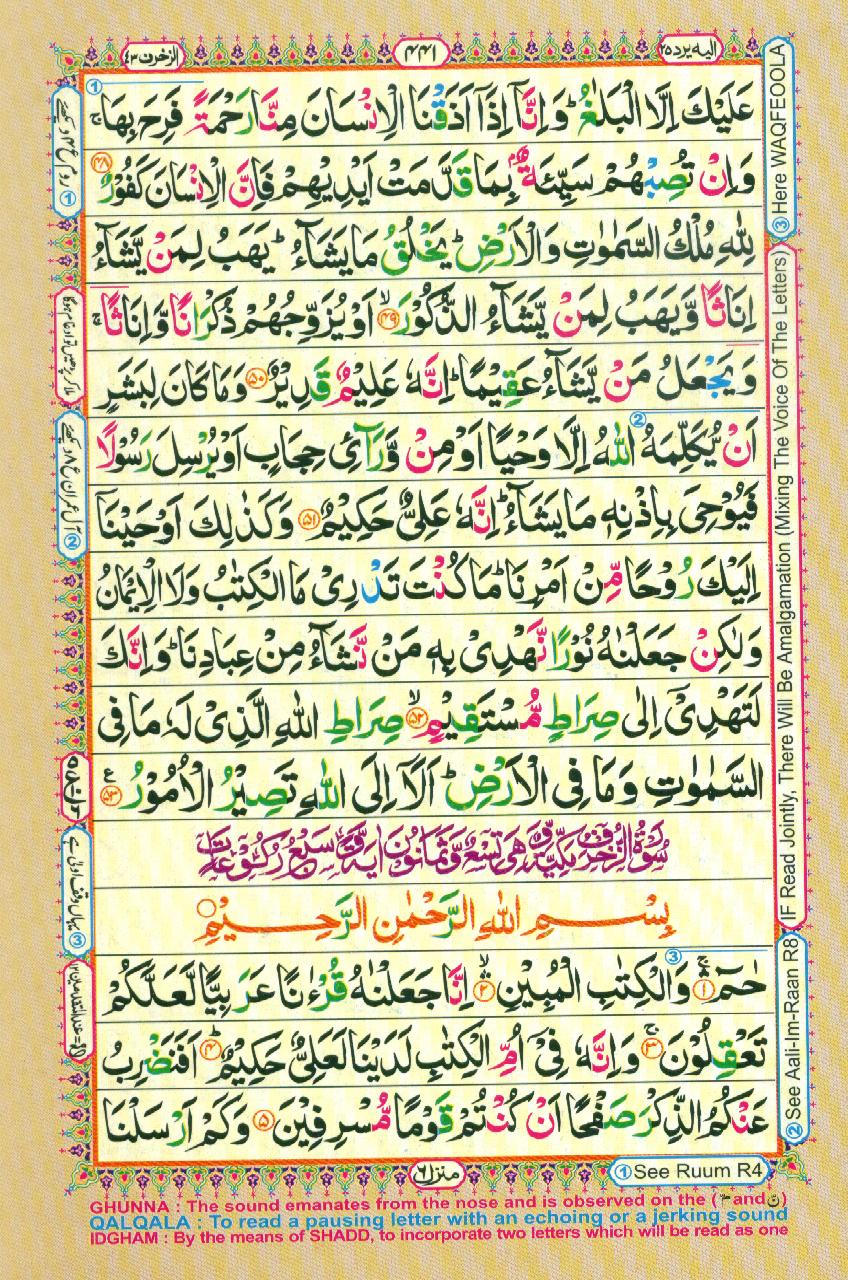 الزخرف ٤٣
٤٤١
اليه يرد ٢٥
عَلَيْكَ اِلَّا الْبَلٰغُ ؕ وَ اِنَّاۤ اِذَاۤ اَذَقْنَا الْاِنْسَانَ مِنَّا رَحْمَةً فَرِحَ بِهَا ۚ
وَاِنْ تُصِبْهُمْ سَيِّئَةٌۢ بِمَا قَدَّمَتْ اَيْدِيْهِمْ فَاِنَّ الْاِنْسَانَ كَفُوْرٌ ﴿۴۸﴾
لِلّٰهِ مُلْكُ السَّمٰوٰتِ وَالْاَرْضِ ؕ يَخْلُقُ مَا يَشَآءُ ؕ يَهَبُ لِمَنْ يَّشَآءُ
اِنَاثًا وَّيَهَبُ لِمَنْ يَّشَآءُ الذُّكُوْرَ ۙ﴿۴۹﴾ اَوْ يُزَوِّجُهُمْ ذُكْرَانًا وَّاِنَاثًا ۚ
وَيَجْعَلُ مَنْ يَّشَآءُ عَقِيْمًا ؕ اِنَّهٗ عَلِيْمٌ قَدِيْرٌ ﴿۵۰﴾ وَمَا كَانَ لِبَشَرٍ
اَنْ يُّكَلِّمَهُ اللّٰهُ اِلَّا وَحْيًا اَوْ مِنْ وَّرَآئِ حِجَابٍ اَوْ يُرْسِلَ رَسُوْلًا
فَيُوْحِيَ بِاِذْنِهٖ مَا يَشَآءُ ؕ اِنَّهٗ عَلِيٌّ حَكِيْمٌ ﴿۵۱﴾ وَكَذٰلِكَ اَوْحَيْنَاۤ
اِلَيْكَ رُوْحًا مِّنْ اَمْرِنَا ؕ مَا كُنْتَ تَدْرِيْ مَا الْكِتٰبُ وَلَا الْاِيْمَانُ
وَلٰكِنْ جَعَلْنٰهُ نُوْرًا نَّهْدِيْ بِهٖ مَنْ نَّشَآءُ مِنْ عِبَادِنَا ؕ وَاِنَّكَ
لَتَهْدِيْۤ اِلٰى صِرَاطٍ مُّسْتَقِيْمٍ ۙ﴿۵۲﴾ صِرَاطِ اللّٰهِ الَّذِيْ لَهٗ مَا فِي
السَّمٰوٰتِ وَمَا فِي الْاَرْضِ ؕ اَلَاۤ اِلَى اللّٰهِ تَصِيْرُ الْاُمُوْرُ ﴿۵۳﴾ ع
سُوْرَةُ الزُّخْرُفِ مَكِّيَّةٌ وَّهِيَ تِسْعٌ وَّثَمَانُوْنَ اٰيَةً وَّسَبْعُ رُكُوْعَاتٍ
بِسْمِ اللّٰهِ الرَّحْمٰنِ الرَّحِيْمِ
حٰمٓ ﴿۱﴾ وَالْكِتٰبِ الْمُبِيْنِ ۙ﴿۲﴾ اِنَّا جَعَلْنٰهُ قُرْءٰنًا عَرَبِيًّا لَّعَلَّكُمْ
تَعْقِلُوْنَ ۚ﴿۳﴾ وَاِنَّهٗ فِيْۤ اُمِّ الْكِتٰبِ لَدَيْنَا لَعَلِيٌّ حَكِيْمٌ ؕ﴿۴﴾ اَفَنَضْرِبُ
عَنْكُمُ الذِّكْرَ صَفْحًا اَنْ كُنْتُمْ قَوْمًا مُّسْرِفِيْنَ ﴿۵﴾ وَكَمْ اَرْسَلْنَا
③ Here WAQFEOOLA
IF Read Jointly, There Will Be Amalgamation (Mixing The Voice Of The Letters)
② See Aali-Im-Raan R8
① روم ع ۴ دیکھیے
ملا کر پڑھیں تو ادغام ہوگا
② آل عمران ع ۸ دیکھیے
③ یہاں وقف اولیٰ ہے
منزل ٦
① See Ruum R4
GHUNNA : The sound emanates from the nose and is observed on the (م and ن)
QALQALA : To read a pausing letter with an echoing or a jerking sound
IDGHAM : By the means of SHADD, to incorporate two letters which will be read as one